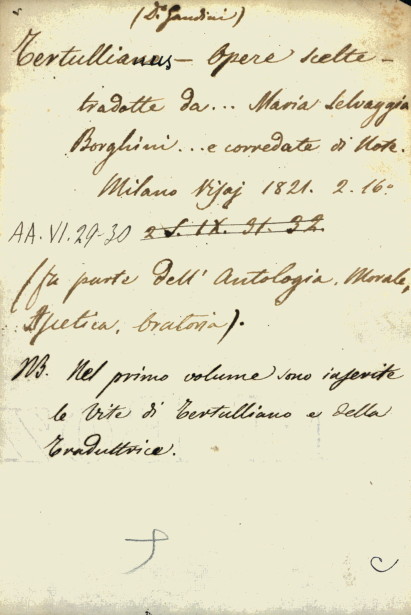 (Dr Gandini)
Tertullianus – Opere scelte –
tradotte da ... Maria Selvaggia
Borghini ... e corredate di Note.
Milano Visaj 1821. 2. 16°
AA. VI. 29-30 2 S. IX. 31. 32.
(fa parte dell' Antologia, Morale,
Ascetica, Oratoria).
NB. Nel primo volume sono inserite
le Vite di Tertulliano e della
Traduttrice.